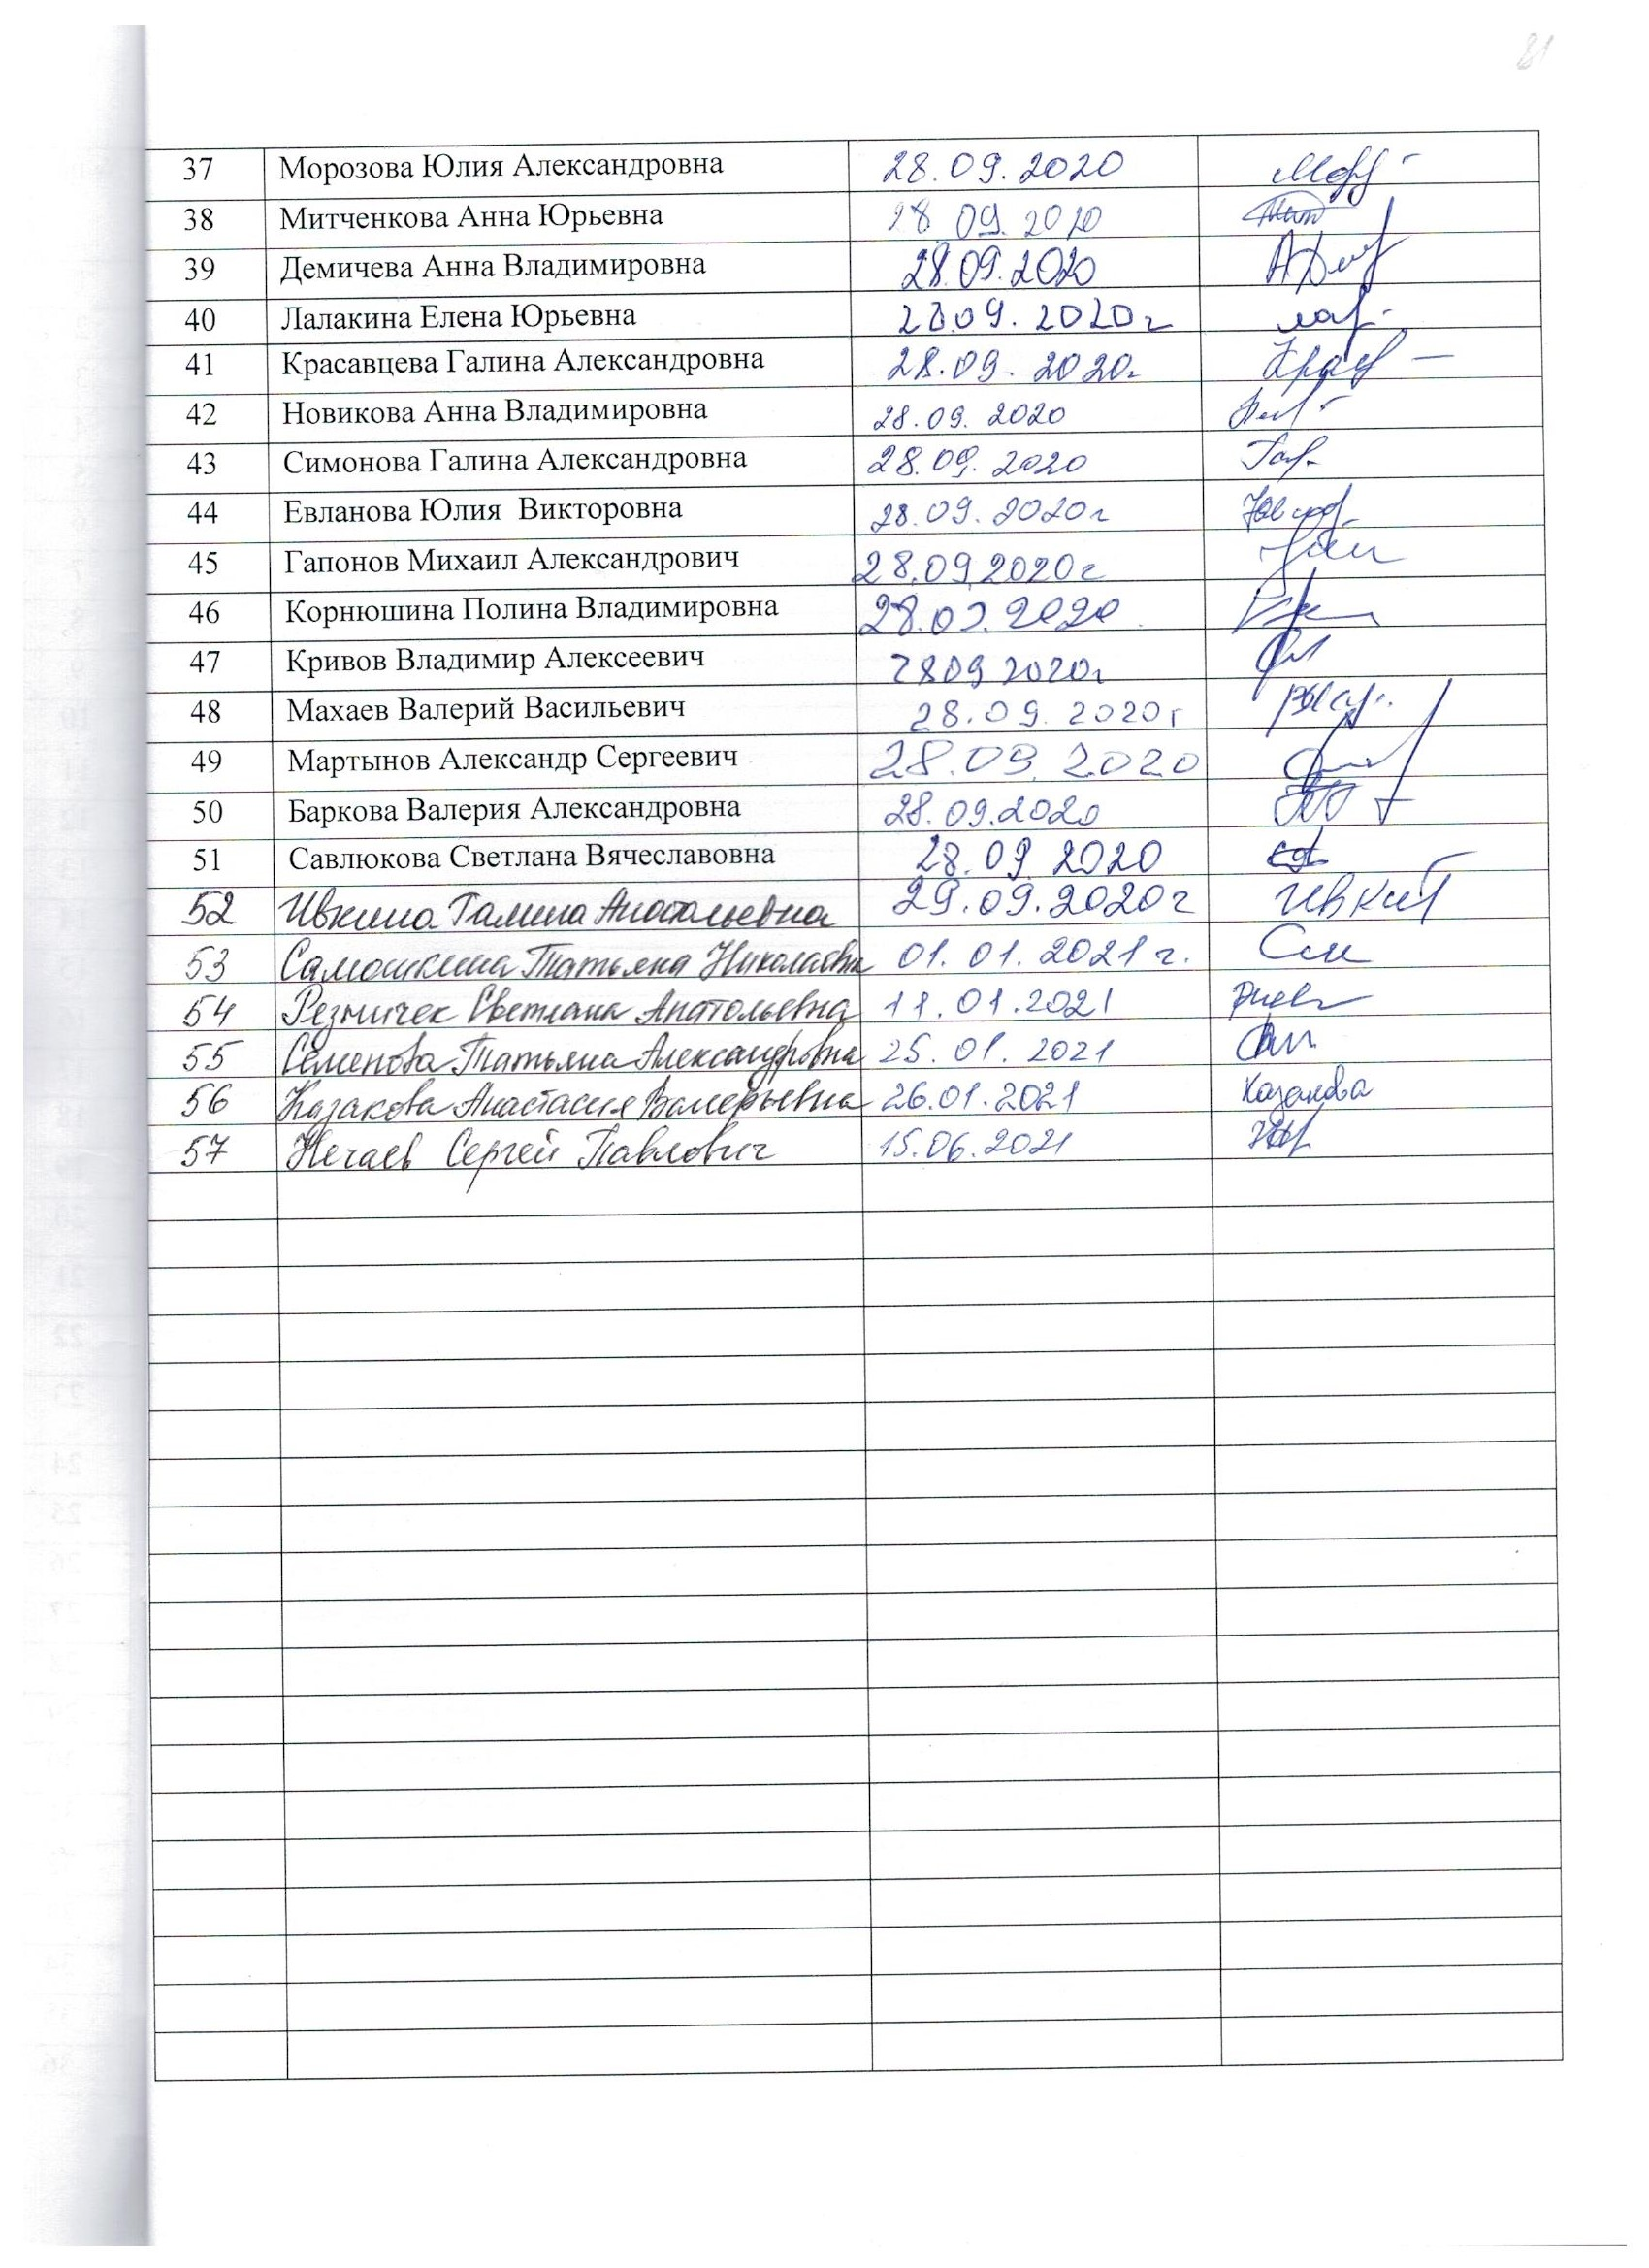 81
37 Морозова Юлия Александровна 28.09.2020
38 Митченкова Анна Юрьевна 28 09. 2020
39 Демичева Анна Владимировна 28.09.2020
40 Лалакина Елена Юрьевна 28.09. 2020г
41 Красавцева Галина Александровна 28.09. 2020г
42 Новикова Анна Владимировна 28.09. 2020
43 Симонова Галина Александровна 28.09. 2020
44 Евланова Юлия Викторовна 28.09. 2020г
45 Гапонов Михаил Александрович 28.09.2020г
46 Корнюшина Полина Владимировна 28.09.2020
47 Кривов Владимир Алексеевич 28 09 2020г
48 Махаев Валерий Васильевич 28.09. 2020г
49 Мартынов Александр Сергеевич 28.09. 2020
50 Баркова Валерия Александровна 28.09.2020
51 Савлюкова Светлана Вячеславовна 28.09 2020
52 Ивкина Галина Анатольевна 29.09.2020г
53 Самошкина Татьяна Николаевна 01.01.2021г.
54 Резничек Светлана Анатольевна 11.01.2021
55 Семенова Татьяна Александровна 25.01.2021
56 Казакова Анастасия Валерьевна 26.01.2021 Казакова
57 Нечаев Сергей Павлович 15.06.2021